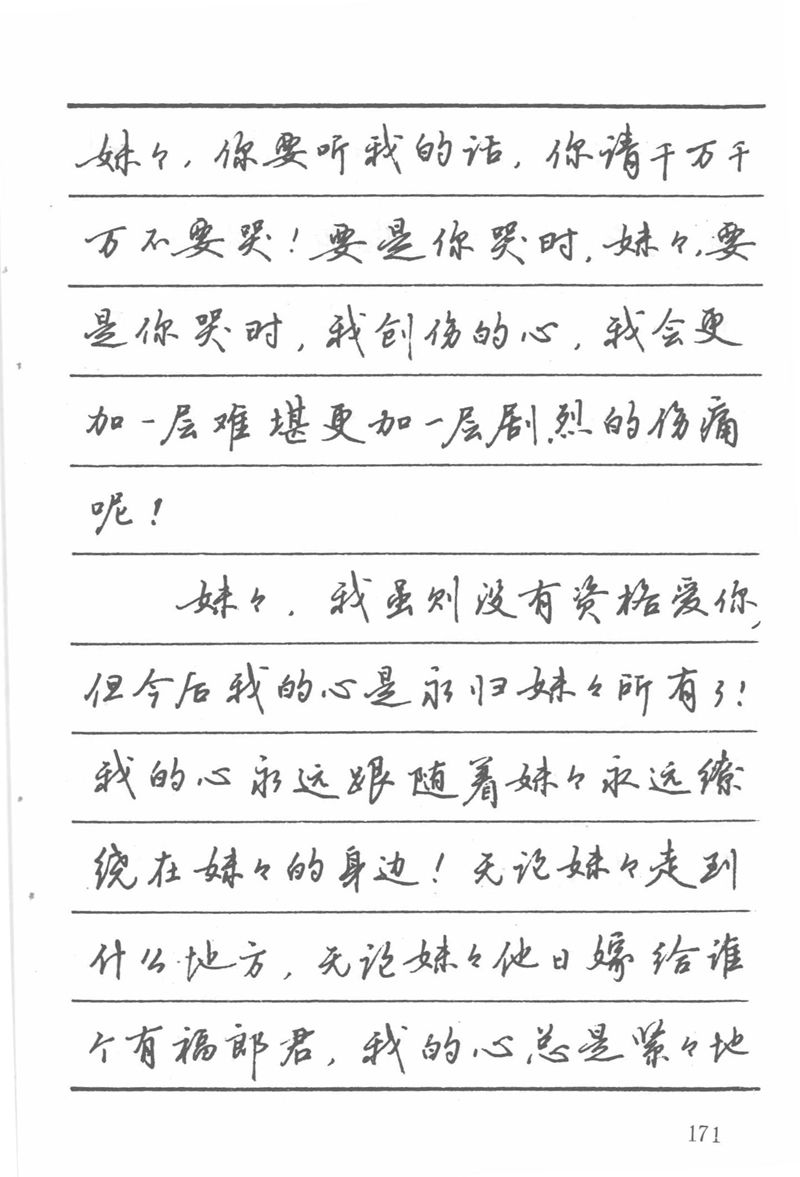 妹々，你要听我的话，你请千万千
万不要哭！要是你哭时，妹々，要
是你哭时，我创伤的心，我会更
加一层难堪更加一层剧烈的伤痛
呢！
妹々，我虽则没有资格爱你，
但今后我的心是永归妹々所有了！
我的心永远跟随着妹々永远缭
绕在妹々的身边！无论妹々走到
什么地方，无论妹々他日嫁给谁
个有福郎君，我的心总是紧々地
171